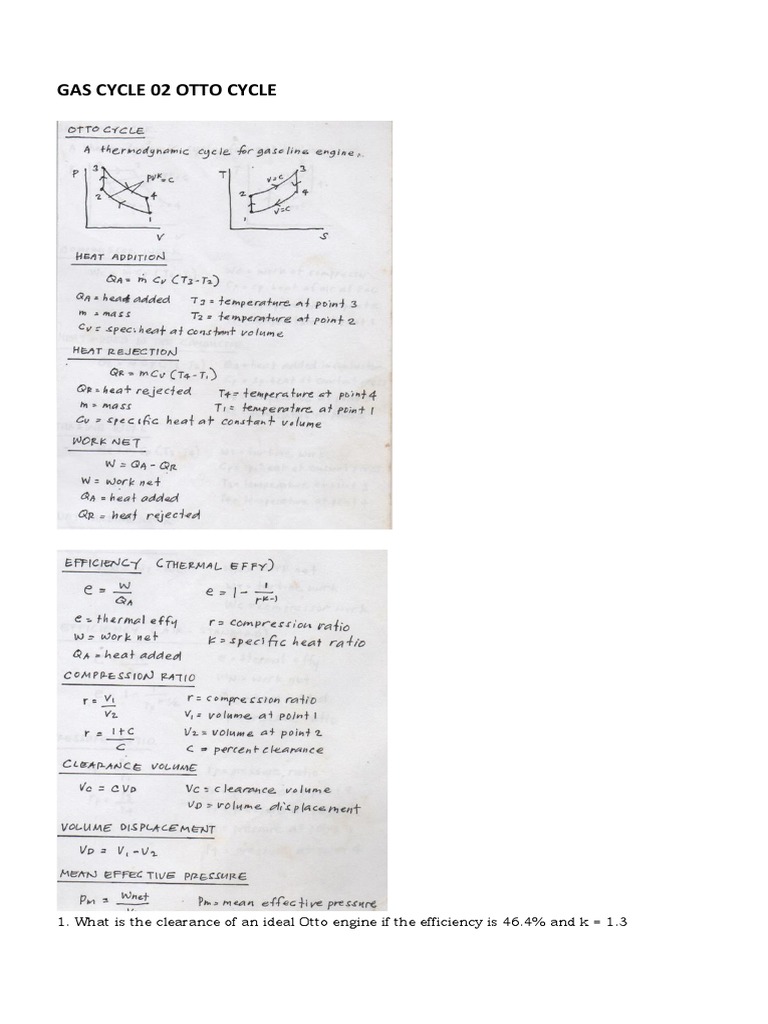 GAS CYCLE 02 OTTO CYCLE
OTTO CYCLE
A thermodynamic cycle for gasoline engine.
P 3 PVᵏ=C 2 4 1 V
T 3 V=C 2 4 V=C 1 S
HEAT ADDITION
QA = ṁ Cv (T3-T2)
QA = heat added T3 = temperature at point 3
m = mass T2 = temperature at point 2
Cv = spec. heat at constant volume
HEAT REJECTION
QR = mCv (T4-T1)
QR = heat rejected T4 = temperature at point 4
m = mass T1 = temperature at point 1
Cv = specific heat at constant volume
WORK NET
W = QA - QR
W = work net
QA = heat added
QR = heat rejected
EFFICIENCY (THERMAL EFFY)
e = W/QA e = 1 - 1/rᵏ⁻¹
e = thermal effy r = compression ratio
W = work net k = specific heat ratio
QA = heat added
COMPRESSION RATIO
r = V1/V2 r = compression ratio
V1 = volume at point 1
r = 1+C/C V2 = volume at point 2
C = percent clearance
CLEARANCE VOLUME
Vc = CVD Vc = clearance volume
VD = volume displacement
VOLUME DISPLACEMENT
VD = V1 - V2
MEAN EFFECTIVE PRESSURE
Pm = Wnet Pm = mean effective pressure
1. What is the clearance of an ideal Otto engine if the efficiency is 46.4% and k = 1.3